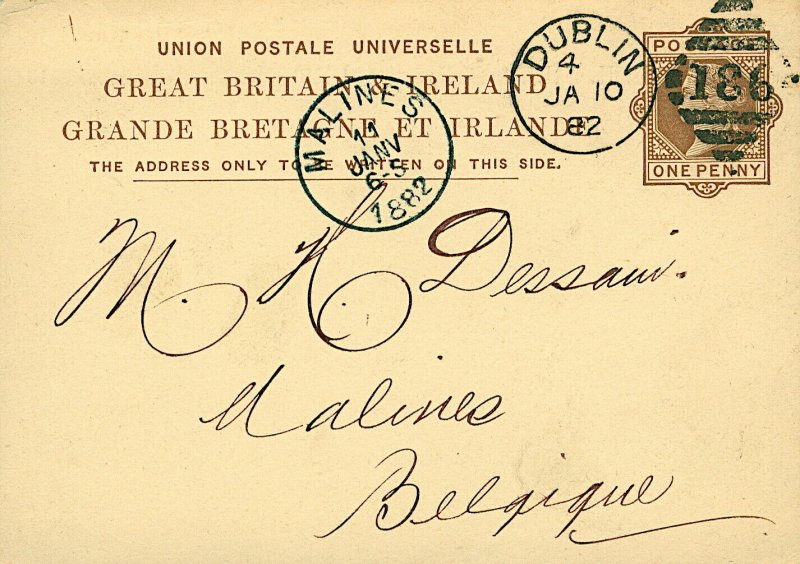 UNION POSTALE UNIVERSELLE
GREAT BRITAIN & IRELAND
GRANDE BRETAGNE ET IRLANDE
THE ADDRESS ONLY TO BE WRITTEN ON THIS SIDE.
MALINES
11
JANV
6-5
1882
DUBLIN
4
JA 10
82
186
ONE PENNY
M. H Dessain.
Malines
Belgique